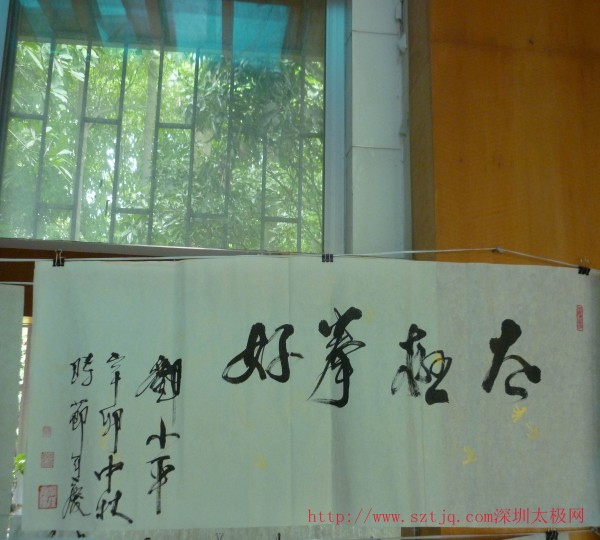 太極拳好
劉小平
辛卯中秋
時節自慶
http://www.sztjq.com深圳太极网